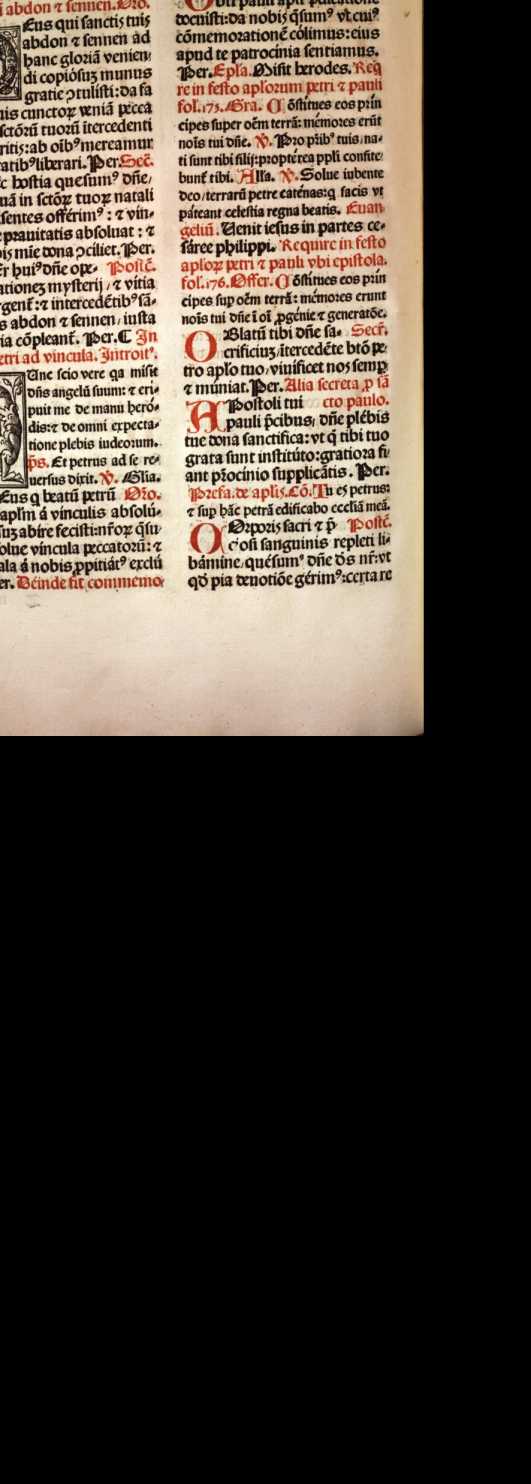 abdon ⁊ sennen. Oro.
Eus qui sanctis tuis
abdon ⁊ sennen ad
hanc gloriā venien/
di copiosuȝ munus
gratie ↄtulisti: da fa
uis cunctoꝝ veniā pecca
sctōrū tuorū ītercedenti
ritis: ab oībꝰ mereamur
atibꝰ liberari. Per. Secꝭ.
c hostia quesumꝰ dn̄e/
uā in sctōꝝ tuoꝝ natali
sentes offérimꝰ: ⁊ vin-
prauitatis absoluat: ⁊
is mīe dona ↄciliet. Per.
r huiꝰ dn̄e ope- Postcꝭ.
ationeȝ mysterij, ⁊ vitia
rgent̄: ⁊ intercedētibꝰ sā-
s abdon ⁊ sennen, iusta
ia cōpleant̄. Per. ⸿ In
etri ad vincula. Introitꝰ.
Unc scio vere qa misit
dn̄s angelū suum: ⁊ eri-
puit me de manu heró-
dis: ⁊ de omni expecta-
tione plebis iudeorum.
p̄s. Et petrus ad se re-
uersus dixit. ℣. Glia.
Eus q beatū petrū Oro.
aplm̄ á vínculis absolú-
suȝ abire fecisti: nr̄oꝝ q̄su-
olue víncula peccatorū: ⁊
ala á nobis ꝓpitiatꝰ exclú
er. Déinde fit commemo-
docuisti: da nobis q̄sumꝰ vt cuiꝰ
cōmemorationē cólimus: eius
apud te patrocinia sentiamus.
Per. Epl̄a. Misit herodes. Req̄
re in festo apl̄orum petri ⁊ pauli
fol. 175. Gra. Cōstitues eos prin
cipes super oēm terrā: mémores erūt
nōis tui dn̄e. ℣. Pro p̄ribꝰ tuis, na-
ti sunt tibi filij: proptérea ppl̄i confite/
bunt̄ tibi. Alla. ℣. Solue iubente
deo, terrarū petre caténas: q̄ facis vt
páteant celestia regna beatis. Euan
geliū. Uenit iesus in partes ce-
sáree philippi. Require in festo
apl̄oꝝ petri ⁊ pauli vbi epistola.
fol. 176. Offer. Cōstitues eos prin
cipes sup oēm terrā: mémores erunt
nōis tui dn̄e ī oī ꝓgénie ⁊ generatōe.
OBlatū tibi dn̄e sa- Secꝭ.
crificiuȝ, ītercedēte btō pe-
tro apl̄o tuo, viuíficet nos semꝑ
⁊ múniat. Per. Alia secreta ꝓ sā
APostoli tui cto paulo.
pauli p̄cibus, dn̄e plébis
tue dona sanctifica: vt q̄ tibi tuo
grata sunt institúto: gratiora fi
ant p̄rocinio supplicātis. Per.
Prefa. de aplis. Cō. Tu es petrus:
⁊ sup hāc petrā edificabo eccl̄iā meā.
COrporis sacri ⁊ p̄ Postcꝭ.
ciosi sanguinis repleti li-
bámine, quésumꝰ dn̄e d̄s nr̄: vt
qd̄ pia deuotiōe gérimꝰ: certa re